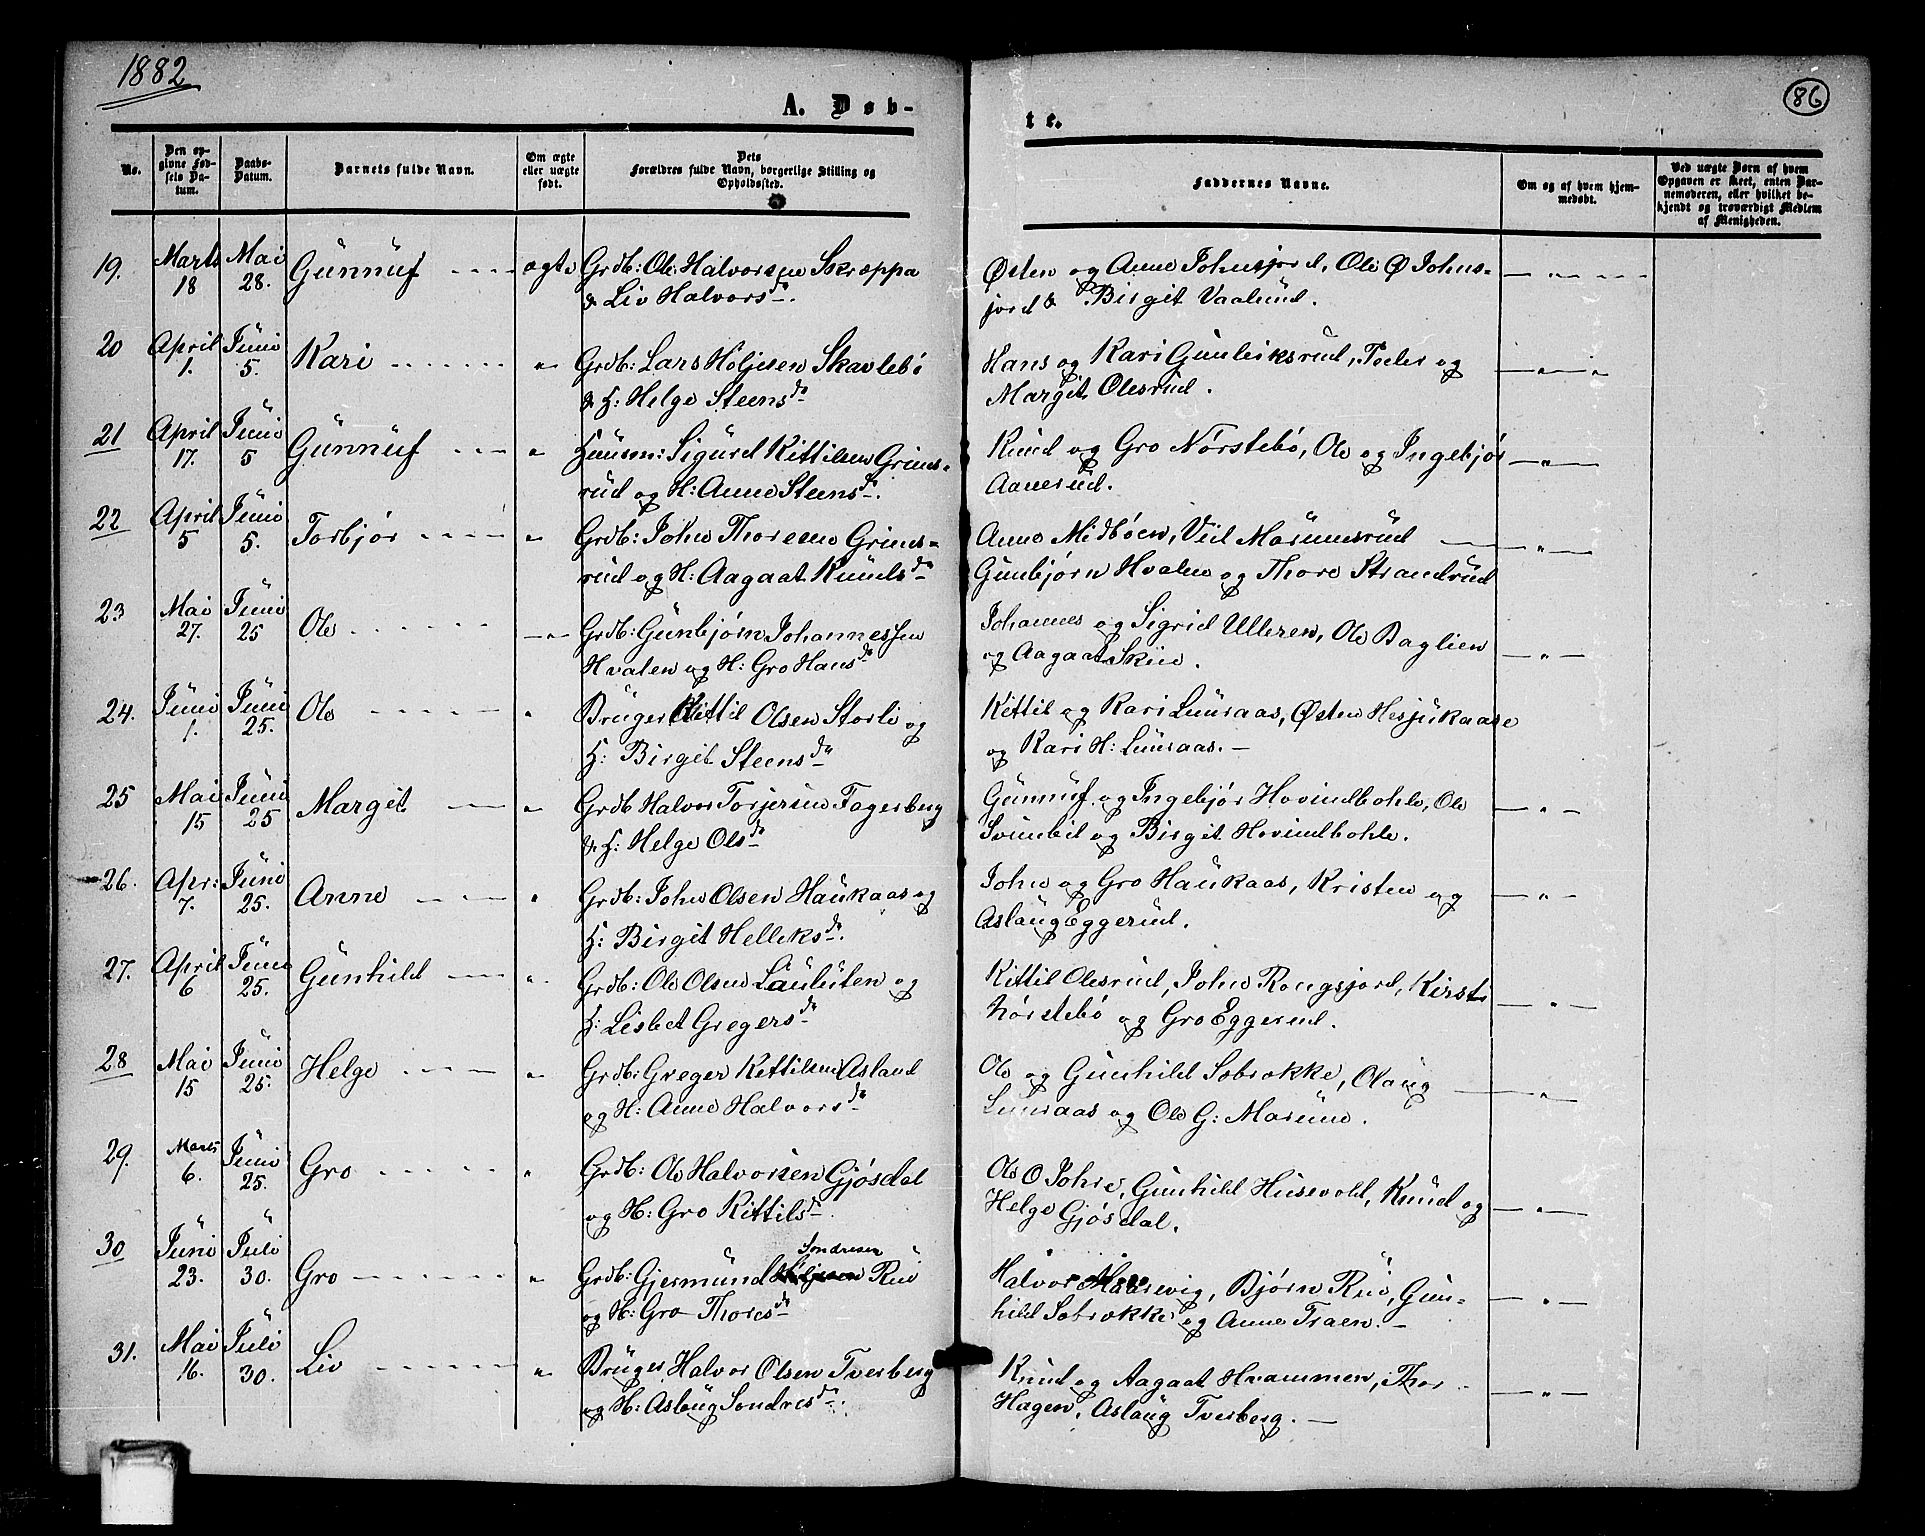 1882
86
A. Døb-
te.
No.
Den op-
givne Fød-
sels Da-
tum.
Daabs-
Datum.
Barnets fulde Navn.
Om ægte
eller uægte
født.
Dets
Forældres fulde Navn, borgerlige Stilling og
Opholdssted.
Faddernes Navne.
Om og af hvem hjem-
medøbt.
Ved uægte Børn af hvem
Opgaven er skeet, enten Bar-
nemoderen, eller hvilket be-
kjendt og troværdigt Medlem
af Menigheden.
19. Marts 18 Mai 28. Gunnuf ægte Grdb: Ole Halvorsen Skræppa
& Liv Halvorsdr.
Østen og Anne Johnsjord, Ole Ø Johns-
jord & Birgit Vaalund.
20 April 1. Juni 5. Kari " Grdb: Lars Høljesen Skavlebø
& H: Helge Steensdr
Hans og Kari Gunleiksrud, Peder og
Margit Olesrud.
21 April 17. Juni 5 Gunnuf " Huusm: Sigurd Kittilsen Grims-
rud og H: Anne Steensdr.
Knud og Gro Nørstebø, Ole og Ingebjør
Aanerud.
22 April 5 Juni 5. Torbjør " Grdb: John Thoresen Grims-
rud og H: Aagaat Knudsdr
Anne Midbøen, Veil Marumsrud
Gunbjørn Hvalen og Thore Strandrud
23 Mai 27. Juni 25 Ole " Grdb: Gunbjørn Johannessen
Hvalen og H: Gro Hansdr
Johannes og Sigrid Ulleren, Ole Baglien
og Aagaat Skiie.
24. Juni 1. Juni 25. Ole " Bruger Kittil Olsen Storli og
H: Birgit Steensdr
Kittil og Kari Luuraas, Østen Hesjukaase
og Kari H: Luuraas. -
25 Mai 15 Juni 25 Margit " Grdb Halvor Torjersen Fagerberg
& H: Helge Olsdr
Gunnuf og Ingebjør Hovindbohle, Ole
Svimbil og Birgit Hovindbohle.
26. Apr: 7. Juni 25. Anne " Grdb: John Olsen Haukaas og
H: Birgit Helleksdr.
John og Gro Haukaas, Kristen og
Aslaug Eggerud.
27. April 6 Juni 25. Gunhild " Grdb: Ole Olsen Lauluten og
H: Lisbet Gregersdr
Kittil Olesrud, John Rongsjord, Kirsti
Nørstebø og Gro Eggerud.
28 Mai 15 Juni 25. Helge " Grdb: Greger Kittilsen Asland
og H: Anne Halvorsdr
Ole og Gunhild Sebrække, Olaug
Luuraas og Ole G: Marume.
29. Marts 6. Juni 25. Gro " Grdb: Ole Halvorsen Gjøsdal
og H: Gro Kittilsdr.
Ole O Johre, Gunhild Husevold, Knud og
Helge Gjøsdal.
30 Juni 23. Juli 30. Gro " Grdb: Gjermund Sondresen Rui
og H: Gro Thoresdr
Halvor Maarevig, Bjørn Rui, Gun-
hild Sebrække og Anne Traen. -
31. Mai 16. Juli 30. Liv " Bruger Halvor Olsen Tverberg
og H: Aslaug Sondresdr.
Knud og Aagaat Hvammen, Thor
Hagen, Aslaug Tverberg. -